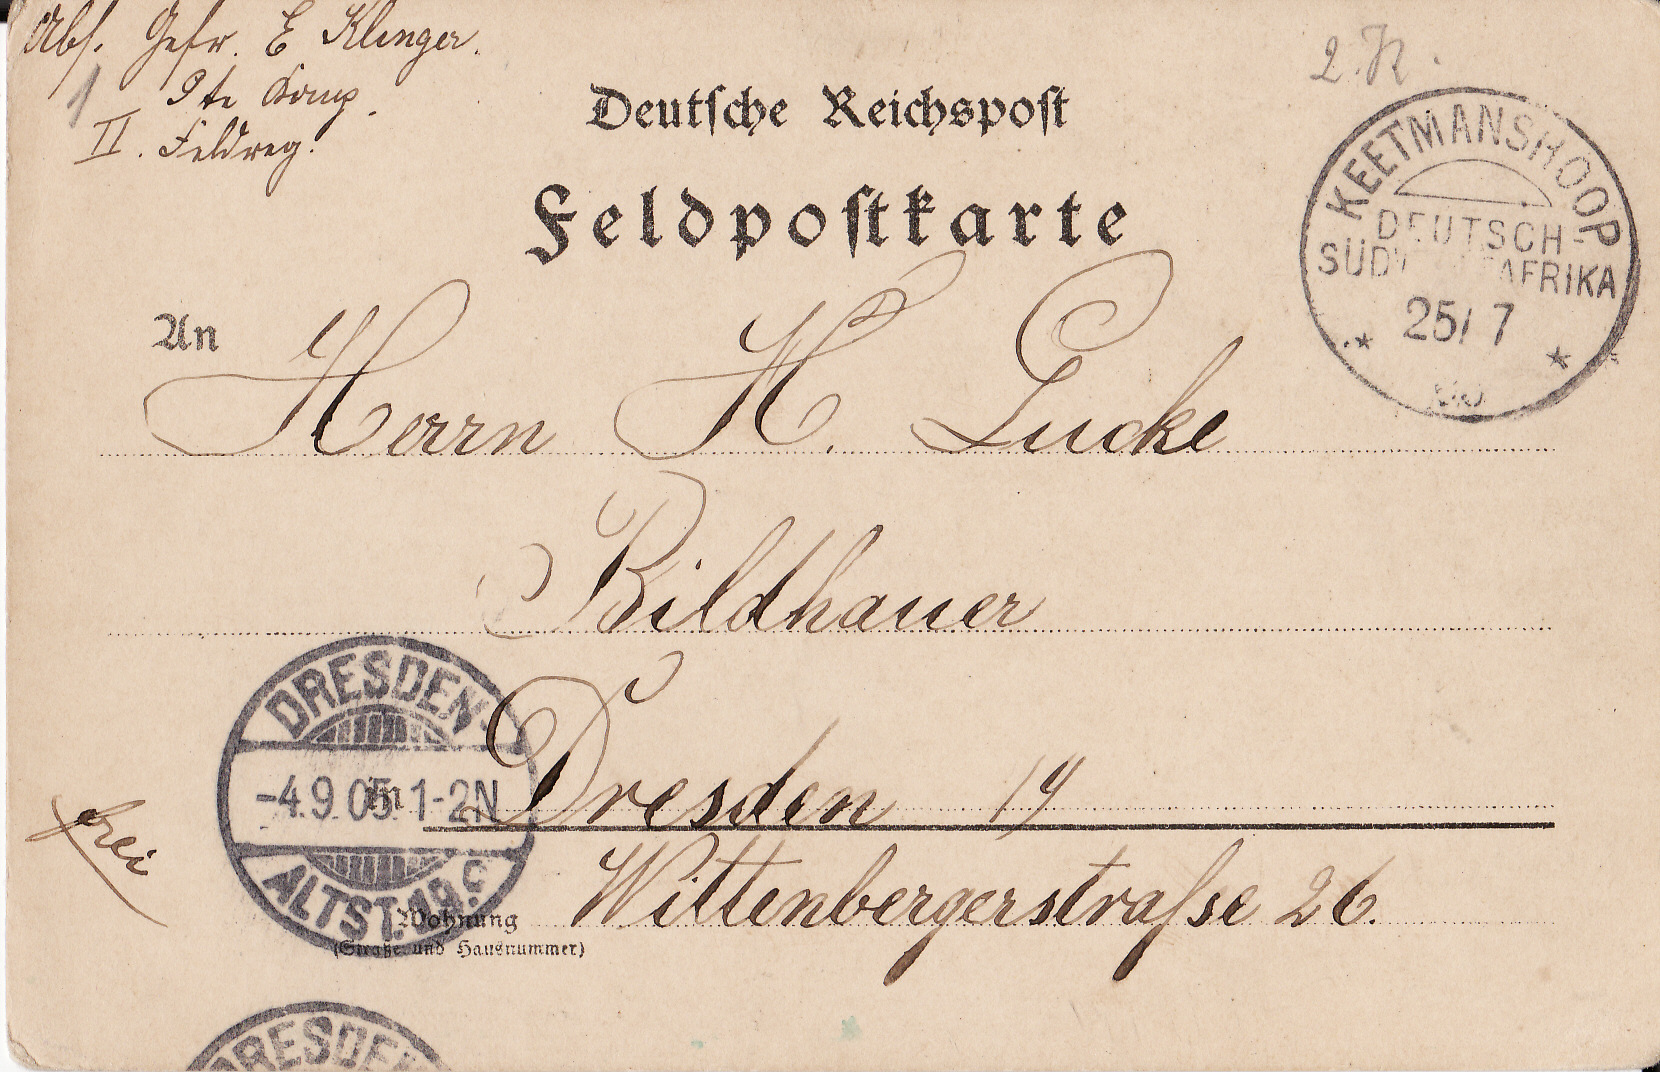 Abs. Gefr. E Klinger.
9te Komp.
II. Feldreg.
Deutsche Reichspost
Feldpostkarte
KEETMANSHOOP
DEUTSCH-
SÜDWESTAFRIKA
25/7
An Herrn H. Lucke
Bildhauer
in Dresden 19
Wohnung Wittenbergerstraſse 26.
(Straße und Hausnummer)
frei
DRESDEN-
-4.9.05.1-2N
ALTST. 19.c
DRESDEN